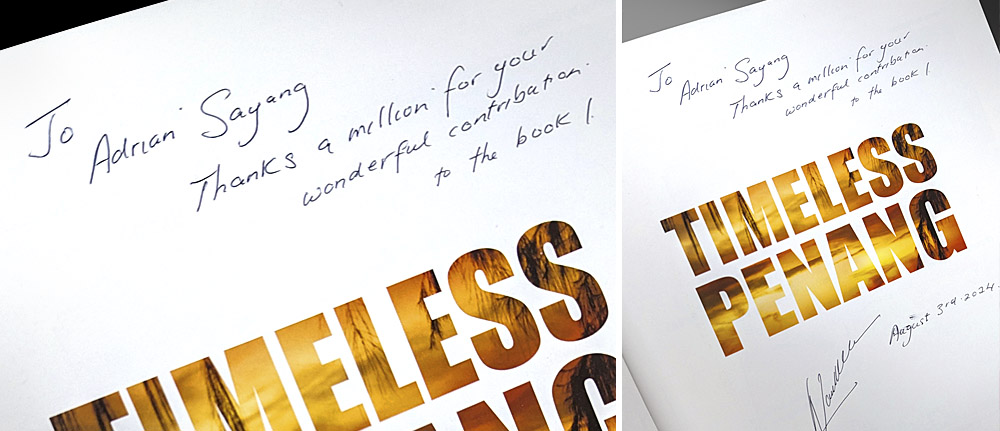 To Adrian Sayang
Thanks a million for your
wonderful contribution
to the book!
TIMELESS
PENANG
To Adrian Sayang
Thanks a million for your
wonderful contribution
to the book!
TIMELESS
PENANG
August 3rd. 2024.